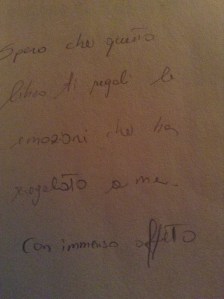 Spero che questo
libro ti regali le
emozioni che ha
regalato a me.
Con immenso affetto